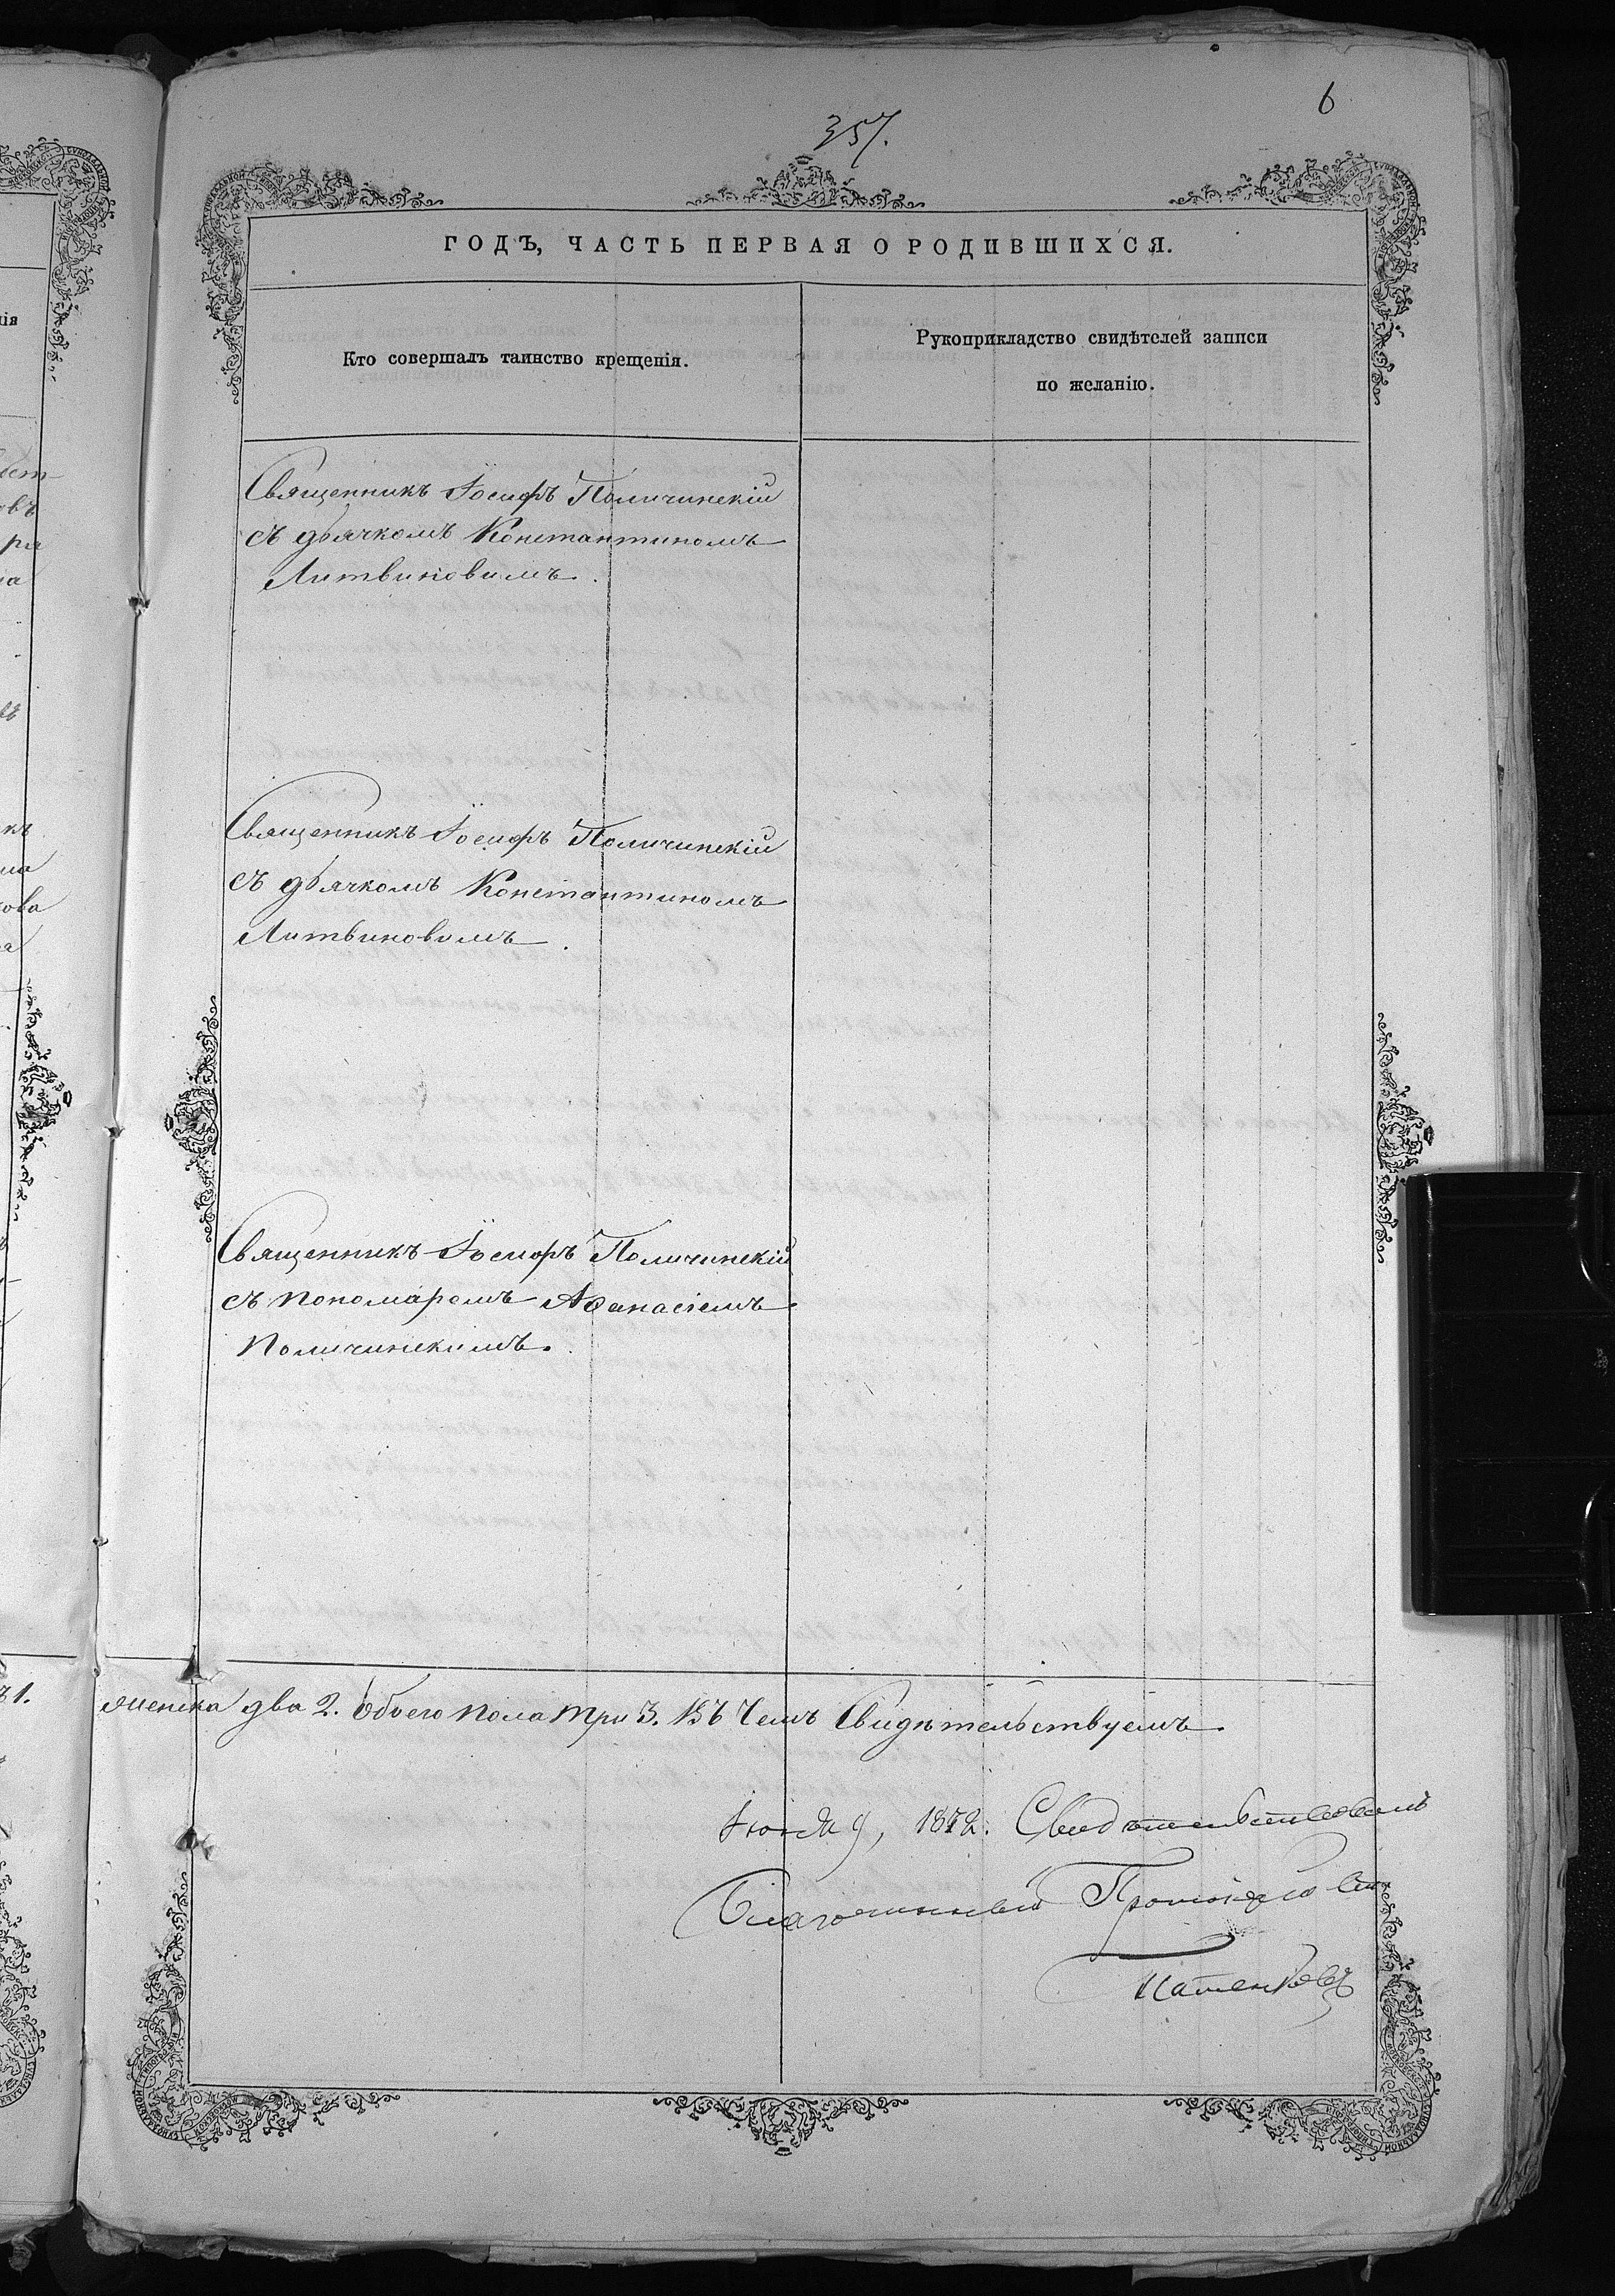 6
357.
ГОДЪ, ЧАСТЬ ПЕРВАЯ О РОДИВШИХСЯ.
Кто совершалъ таинство крещенія.
Рукоприкладство свидѣтелей записи
по желанію.
Священникъ Іосифъ Поличинскій
съ дьячкомъ Константиномъ
Литвиновымъ.
Священникъ Іосифъ Поличинскій
съ дьячкомъ Константиномъ
Литвиновымъ.
Священникъ Іосифъ Поличинскій
съ пономаремъ Аѳанасіемъ
Поличинскимъ.
женска два 2. Обоего пола три 3. Въ чемъ Свидѣтельствуемъ.
9, 1872. Свидѣтельствовалъ
Благочинный Протоіерей